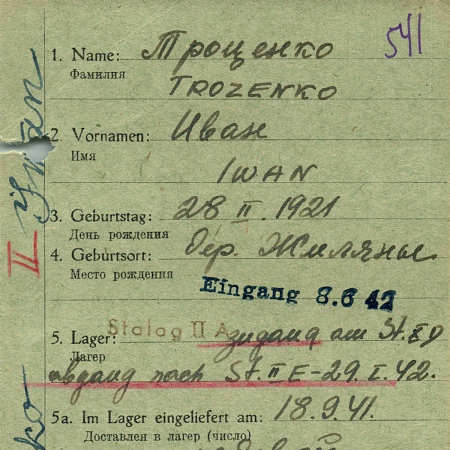 541
1. Name: Троценко
Фамилия
TROZENKO
2. Vornamen: Иван
Имя
IWAN
3. Geburtstag: 28 II. 1921
День рождения
4. Geburtsort: Дер. Жиляны
Место рождения
Eingang 8.6 42
Stalag II A
5. Lager: zugang am St. X D
Лагер
abgang nach St. II E - 29. I. 42.
5a. Im Lager eingeliefert am: 18.9.41.
Доставлен в лагер (число)
II Iwan
ko